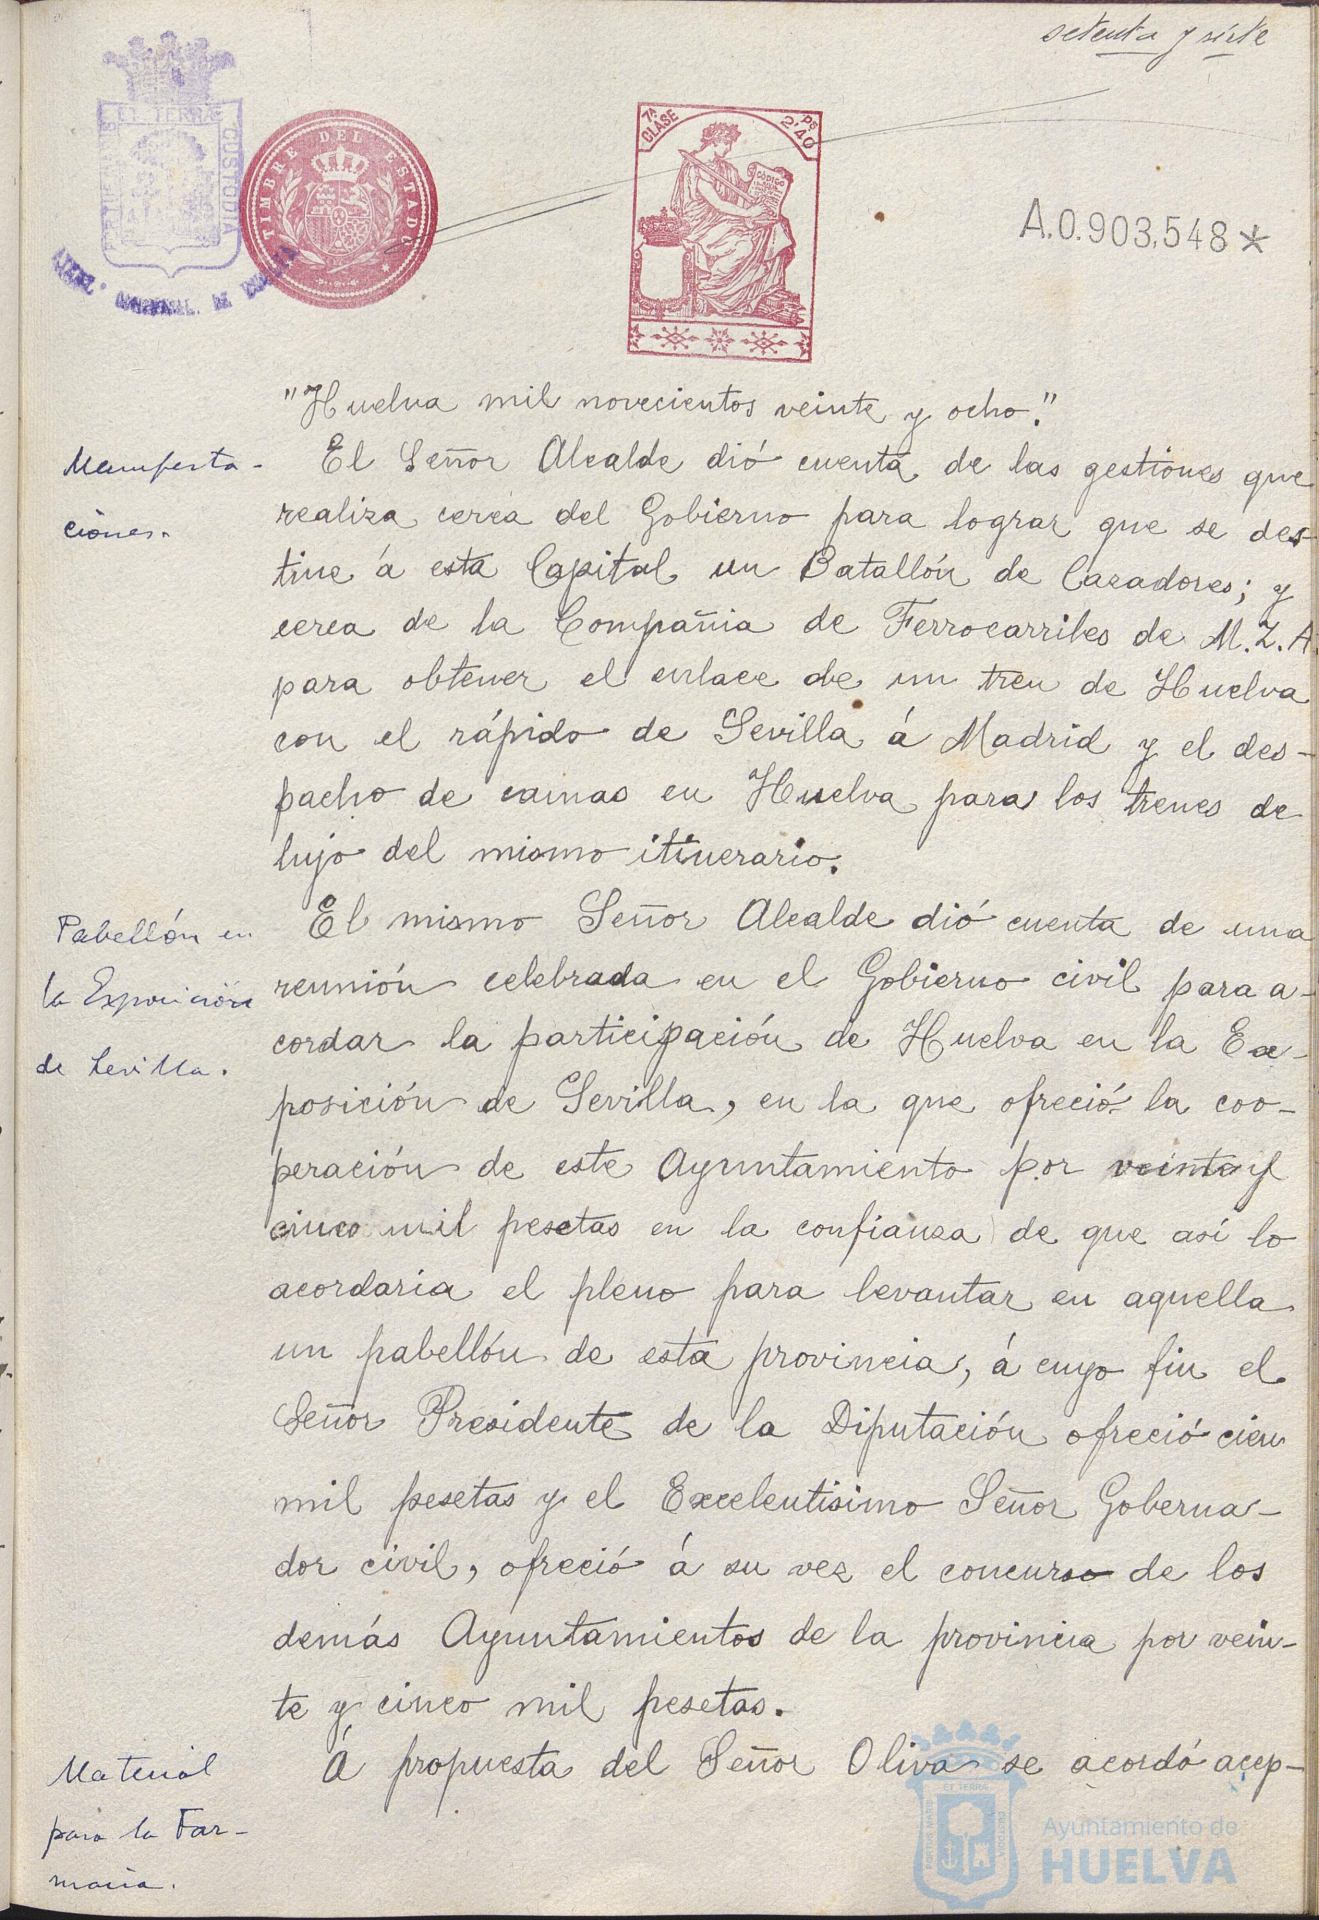 setenta y siete
ET TERRA
CUSTODIA
TIMBRE DEL ESTADO
7ª CLASE
Ps 2'40
CÓDIGO
A.0.903,548*
"Huelva mil novecientos veinte y ocho."
Manifesta-
ciones.
El Señor Alcalde dió cuenta de las gestiones que
realiza cerca del Gobierno para lograr que se des-
tine á esta Capital un Batallón de Cazadores; y
cerca de la Compañia de Ferrocarriles de M.Z.A.
para obtener el enlace de un tren de Huelva
con el rápido de Sevilla á Madrid y el des-
pacho de camas en Huelva para los trenes de
lujo del mismo itinerario.
Pabellón en
la Exposición
de Sevilla.
El mismo Señor Alcalde dió cuenta de una
reunión celebrada en el Gobierno civil para a-
cordar la participación de Huelva en la Ex-
posición de Sevilla, en la que ofreció la coo-
peración de este Ayuntamiento por veinte y
cinco mil pesetas en la confianza de que así lo
acordaria el pleno para levantar en aquella
un pabellón de esta provincia, á cuyo fin el
Señor Presidente de la Diputación ofreció cien
mil pesetas y el Excelentisimo Señor Goberna-
dor civil, ofreció á su vez el concurso de los
demás Ayuntamientos de la provincia por vein-
te y cinco mil pesetas.
Material
para la Far-
macia.
Á propuesta del Señor Oliva se acordó acep-
Ayuntamiento de
HUELVA